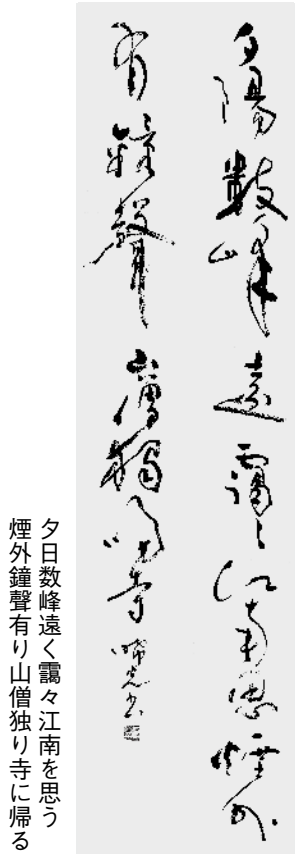 夕陽數峰遠靄々江南思煙外
有鐘聲山僧獨帰寺
夕日数峰遠く靄々江南を思う
煙外鐘聲有り山僧独り寺に帰る